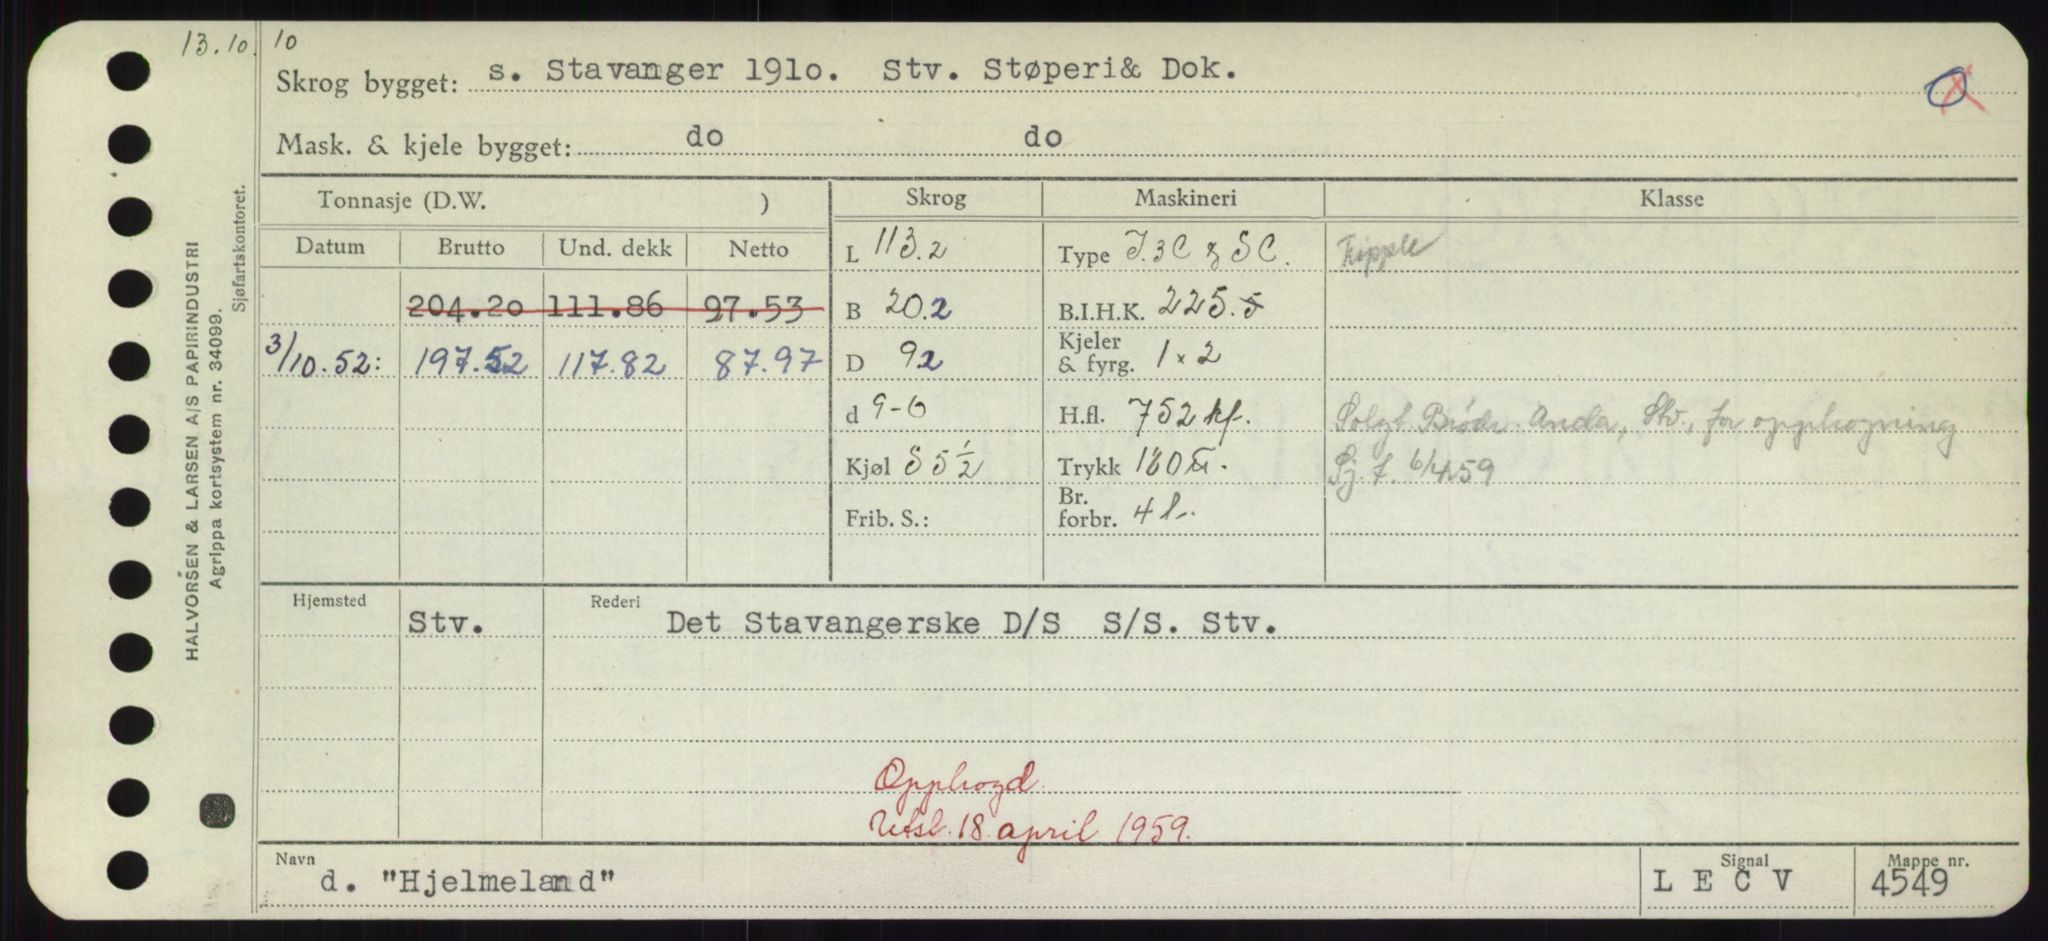 13.10. 10
Skrog bygget: s. Stavanger 1910. Stv. Støperi& Dok.
Mask. & kjele bygget: do do
Tonnasje (D.W. )
Skrog
Maskineri
Klasse
Datum Brutto Und. dekk Netto
204.20 111.86 97.53
3/10.52: 197.52 117.82 87.97
L 113.2
B 20.2
D 92
d 9-0
Kjøl S 5 1/2
Frib. S.:
Type T.3C & SC.
B.I.H.K. 225.5
Kjeler & fyrg. 1 x 2
H.fl. 752 kf.
Trykk 180
Br. forbr. 4 l.
Tripple
Solgt Brødr. Anda, Stv., for opphogning
Sj. t. 6/4.59
Hjemsted Rederi
Stv. Det Stavangerske D/S S/S. Stv.
Opphogd.
Utsl. 18. april 1959.
Navn Signal Mappe nr.
d. "Hjelmeland" L E C V 4549
HALVORSEN & LARSEN A/S PAPIRINDUSTRI
Agrippa kortsystem nr. 34099.
Sjøfartskontoret.